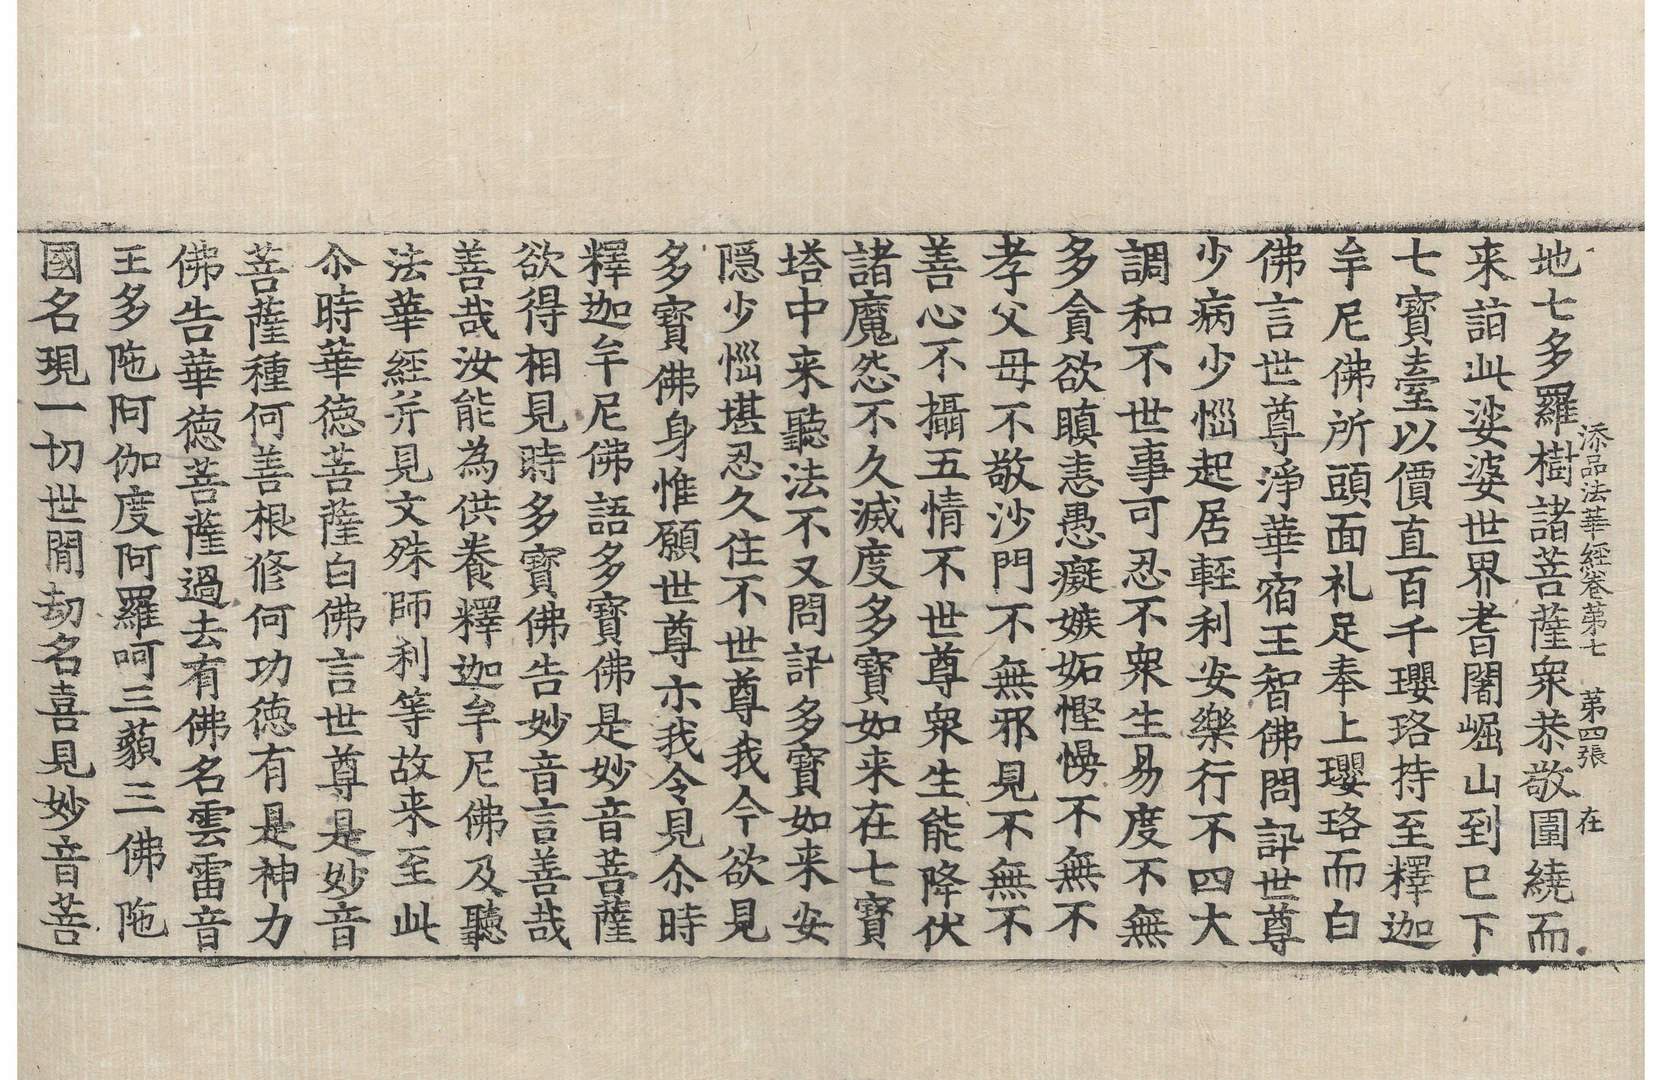 添品法華經卷第七　第四張　在
地七多羅樹諸菩薩衆恭敬圍繞而
来詣此娑婆世界耆闍崛山到已下
七寳臺以價直百千瓔珞持至釋迦
牟尼佛所頭面礼足奉上瓔珞而白
佛言世尊淨華宿王智佛問訊世尊
少病少惱起居輕利安樂行不四大
調和不世事可忍不衆生易度不無
多貪欲瞋恚愚癡嫉妬慳慢不無不
孝父母不敬沙門不無邪見不無不
善心不攝五情不世尊衆生能降伏
諸魔怨不久滅度多寳如来在七寳
塔中来聽法不又問訊多寳如来安
隠少惱堪忍久住不世尊我今欲見
多寳佛身惟願世尊示我令見尒時
釋迦牟尼佛語多寳佛是妙音菩薩
欲得相見時多寳佛告妙音言善哉
善哉汝能為供養釋迦牟尼佛及聽
法華經并見文殊師利等故来至此
尒時華德菩薩白佛言世尊是妙音
菩薩種何善根修何功德有是神力
佛告華德菩薩過去有佛名雲雷音
王多陁阿伽度阿羅呵三藐三佛陁
國名現一切世閒劫名喜見妙音菩